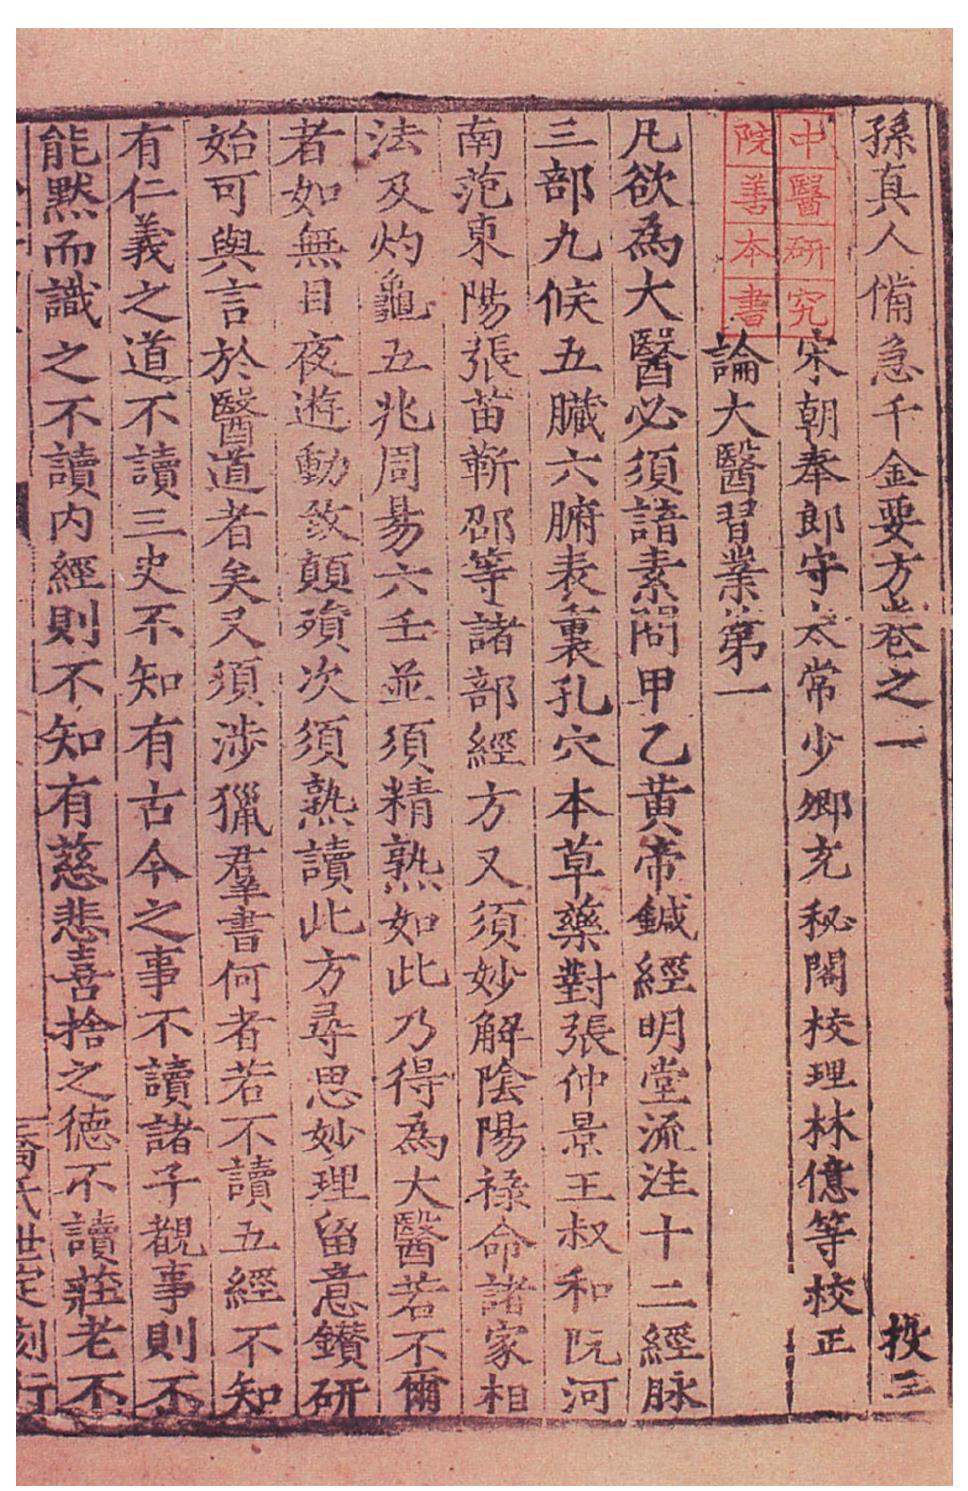 孫真人備急千金要方卷之一
投三
中醫研究
院善本書
宋朝奉郎守太常少卿充秘閣校理林億等校正
論大醫習業第一
凡欲為大醫必須諳素問甲乙黃帝鍼經明堂流注十二經脉
三部九候五臟六腑表裏孔穴本草藥對張仲景王叔和阮河
南范東陽張苗靳邵等諸部經方又須妙解陰陽祿命諸家相
法及灼龜五兆周易六壬並須精熟如此乃得為大醫若不爾
者如無目夜遊動致顛殞次須熟讀此方尋思妙理留意鑽研
始可與言於醫道者矣又須涉獵羣書何者若不讀五經不知
有仁義之道不讀三史不知有古今之事不讀諸子覩事則不
能黙而識之不讀内經則不知有慈悲喜捨之德不讀莊老不
喬氏世定刻行